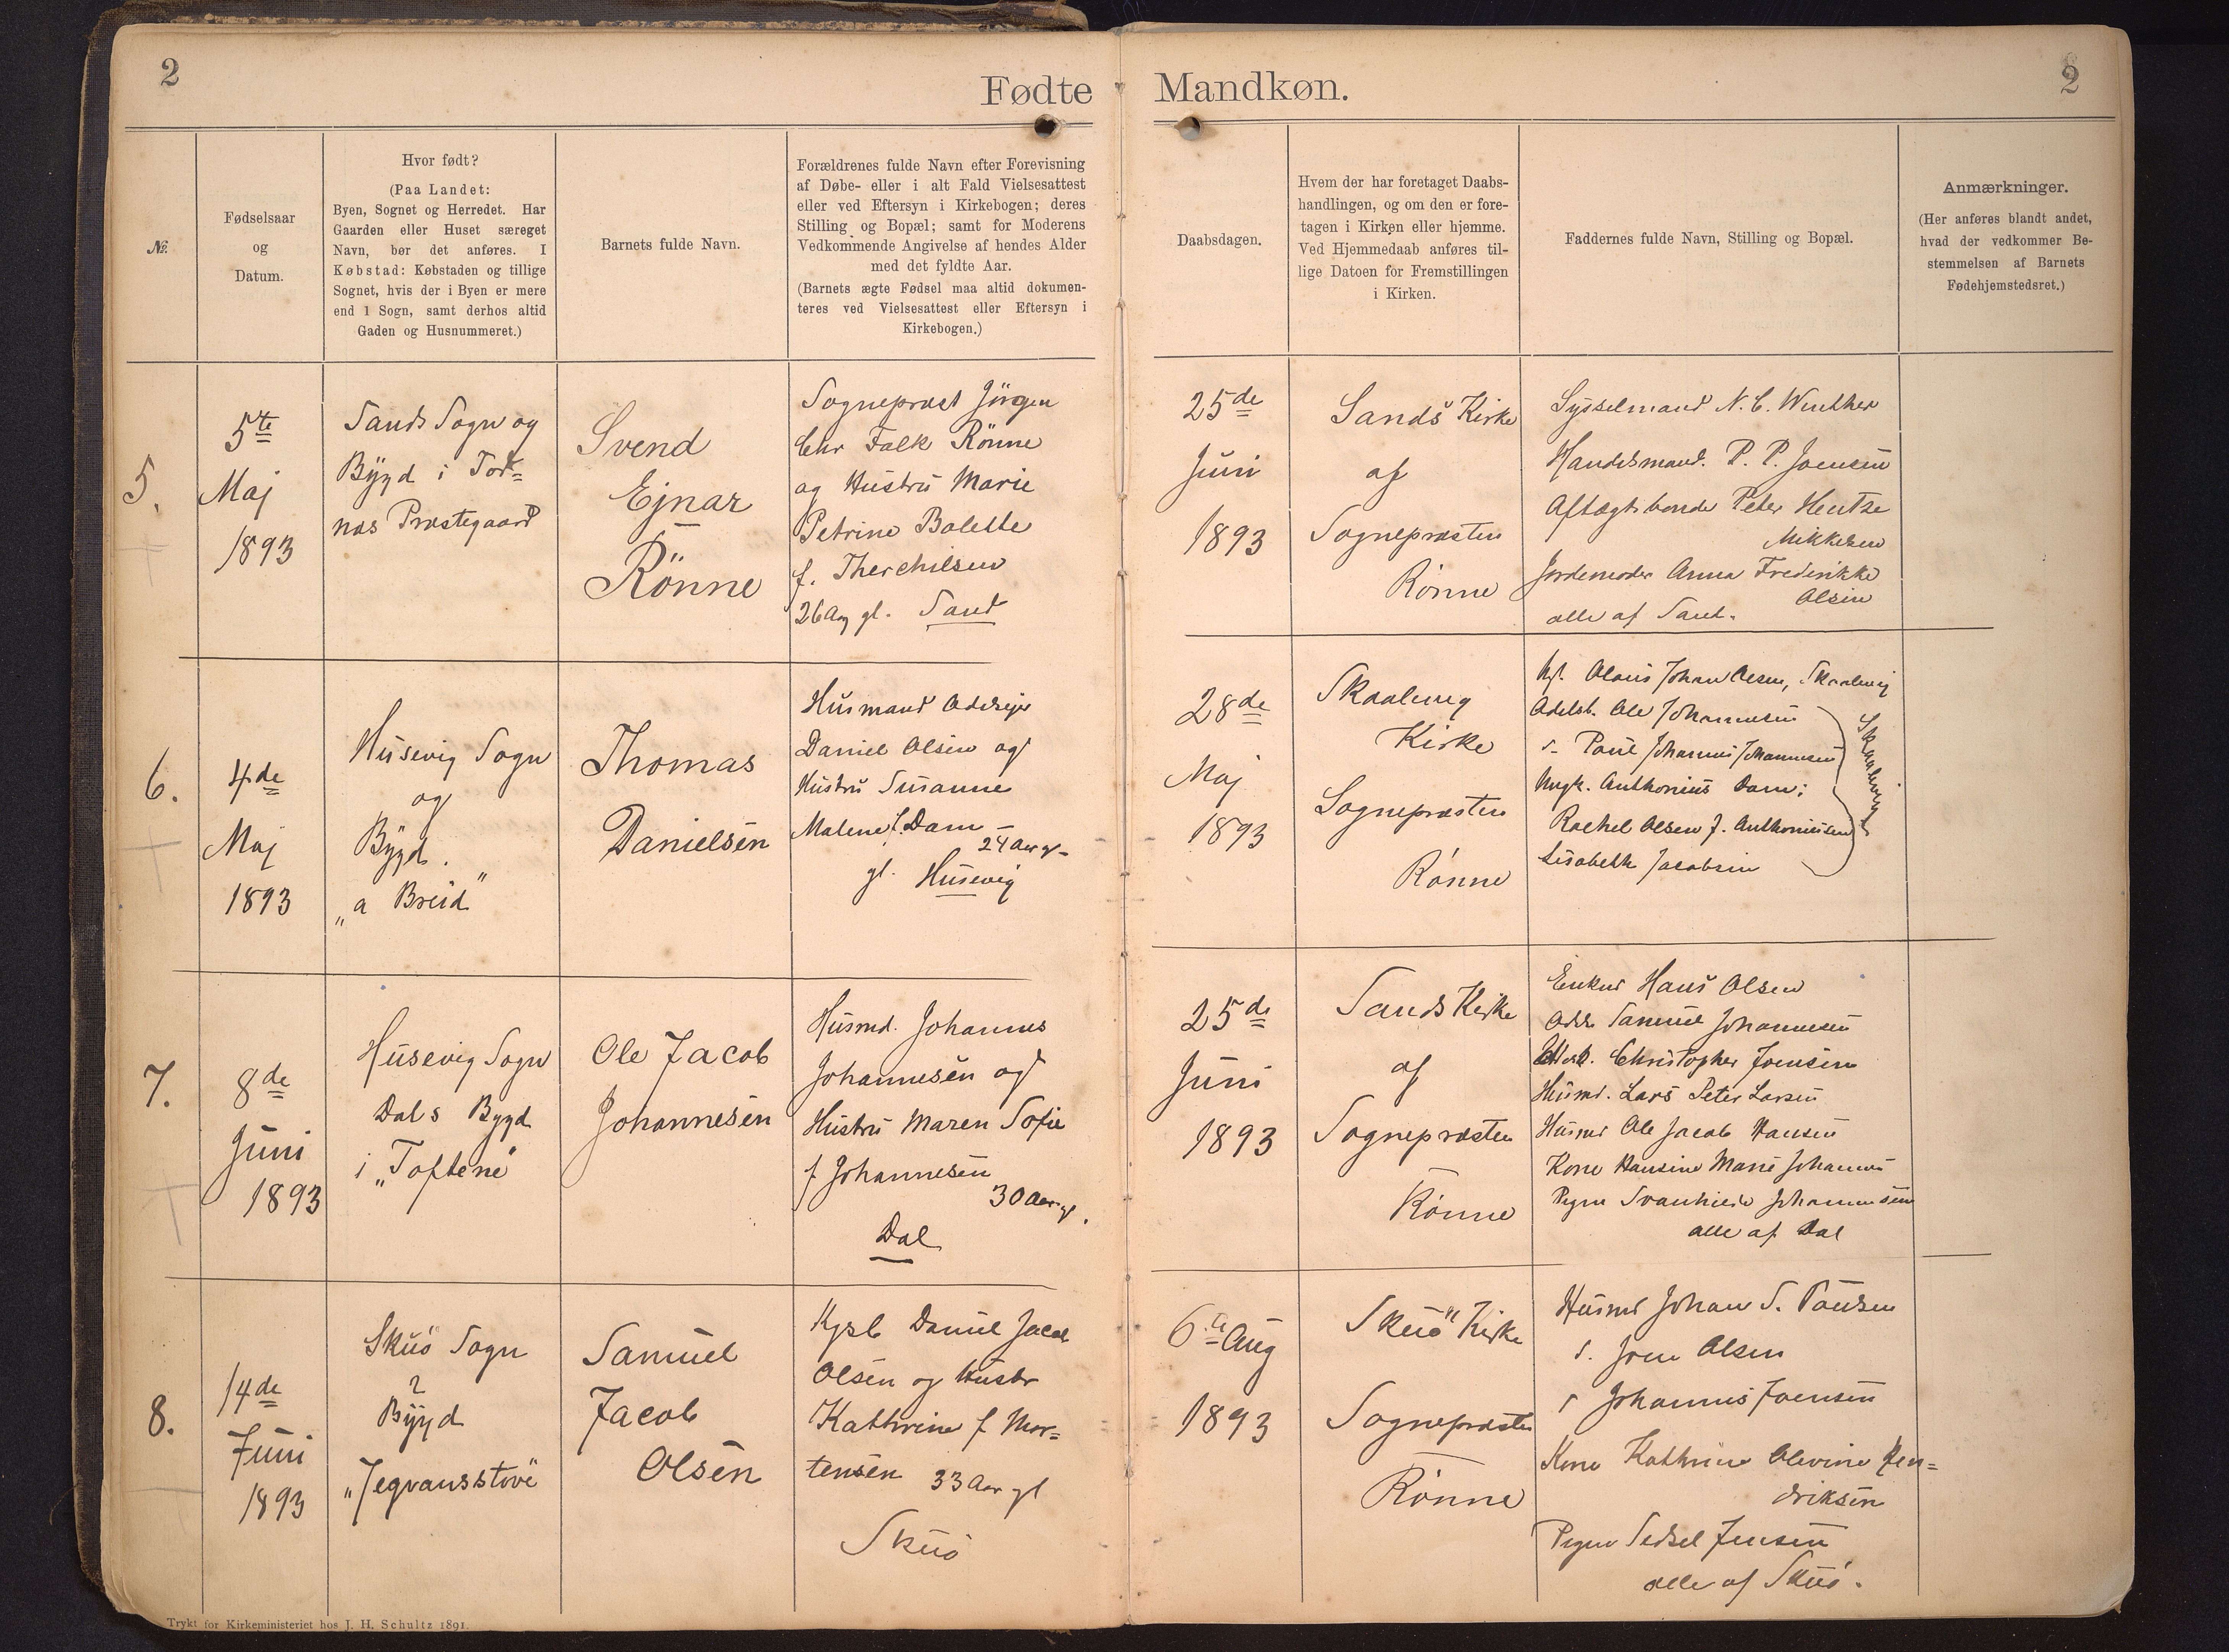 2
Fødte
Mandkøn.
2
№
Fødselsaar
og
Datum.
Hvor født?
(Paa Landet:
Byen, Sognet og Herredet. Har
Gaarden eller Huset særeget
Navn, bør det anføres. I
Købstad: Købstaden og tillige
Sognet, hvis der i Byen er mere
end 1 Sogn, samt derhos altid
Gaden og Husnummeret.)
Barnets fulde Navn.
Forældrenes fulde Navn efter Forevisning
af Døbe- eller i alt Fald Vielsesattest
eller ved Eftersyn i Kirkebogen; deres
Stilling og Bopæl; samt for Moderens
Vedkommende Angivelse af hendes Alder
med det fyldte Aar.
(Barnets ægte Fødsel maa altid dokumen-
teres ved Vielsesattest eller Eftersyn i
Kirkebogen.)
Daabsdagen.
Hvem der har foretaget Daabs-
handlingen, og om den er fore-
tagen i Kirken eller hjemme.
Ved Hjemmedaab anføres til-
lige Datoen for Fremstillingen
i Kirken.
Faddernes fulde Navn, Stilling og Bopæl.
Anmærkninger.
(Her anføres blandt andet,
hvad der vedkommer Be-
stemmelsen af Barnets
Fødehjemstedsret.)
5.
5te
Maj
1893
Sands Sogn og
Bygd i Tod=
næs Præstegaard
Svend
Ejnar
Rönne
Sognepræst Jörgen
Chr Falk Rönne
og Hustru Marie
Petrine Bolette
f. Therchilsen
26 Aar gl. Sand
25de
Juni
1893
Sands Kirke
af
Sognepræsten
Rönne
Sysselmand N. C. Winther
Handelsmand. P. P. Joensen
Aftægtsbonde Peter Hentze
Mikkelsen
Jordemoder Anna Frederikke
Olsen
alle af Sand.
6.
4de
Maj
1893
Husevig Sogn
og
Bygd.
"a Breid"
Thomas
Danielsen
Husmand
Daniel Olsen og
Hustru Susanne
Malene f. Dam
24 Aar gl
gl. Husevig
28de
Maj
1893
Skaalevig
Kirke
Sognepræsten
Rönne
Johan Olsen, Skaalevig
Adelsb. Ole Johannesen
s. Poul Johannes Johannesen
Ungk. Anthonius Dam;
Rachel Olsen f. Anthoniussen
Lisabeth Jacobsen
Skaalevig
7.
8de
Juni
1893
Husevig Sogn
Dals Bygd
i "Toftene"
Ole Jacob
Johannesen
Husmd. Johannes
Johannesen og
Hustru Maren Sofie
f Johannesen
30 Aar gl.
Dal
25de
Juni
1893
Sands Kirke
af
Sognepræsten
Rönne
Enkmd Hans Olsen
Samuel Johannesen
Christopher Joensen
Husmd. Lars Peter Larsen
Husmd Ole Jacob Hansen
Kone Hansine Marie Johannes
Pigen Svanhild Johannesen
alle af Dal
8.
14de
Juni
1893
Skuö Sogn
Bygd
"Jegvansstove"
Samuel
Jacob
Olsen
Kgsb Daniel Jacob
Olsen og Hustr
Kathrine f Mor=
tensen 33 Aar gl
Skuö
6te Aug
1893
Skuö Kirke
Sognepræsten
Rönne
Husmd Johan S. Poulsen
s. Joen Olsen
s Johannes Joensen
Kone Kathrine Olevine Hen=
driksen
Pigen Sidsel Jensen
alle af Skuö.
Trykt for Kirkeministeriet hos J. H. Schultz 1891.